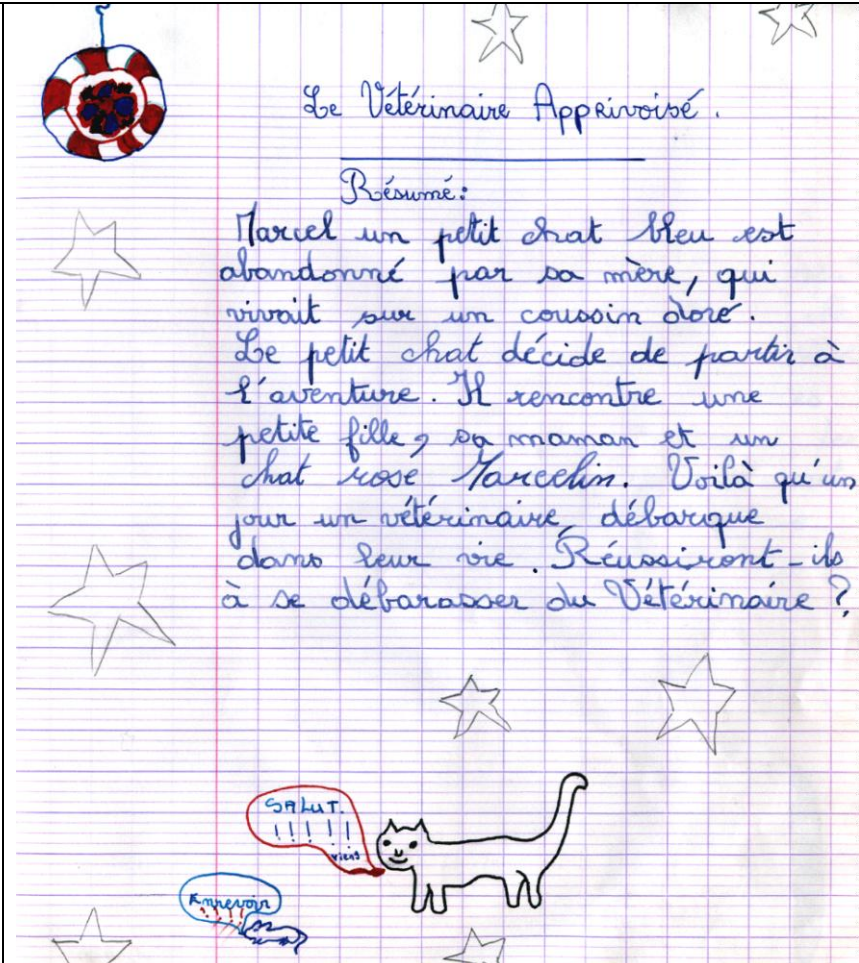 Le Vétérinaire Apprivoisé.
Résumé:
Marcel un petit chat bleu est
abandonné par sa mère, qui
vivait sur un coussin doré.
Le petit chat décide de partir à
l'aventure. Il rencontre une
petite fille, sa maman et un
chat rose Marcelin. Voilà qu'un
jour un vétérinaire débarque
dans leur vie. Réussiront-ils
à se débarasser du Vétérinaire ?
SALUT.
! ! ! ! !
viens
Anrevoir